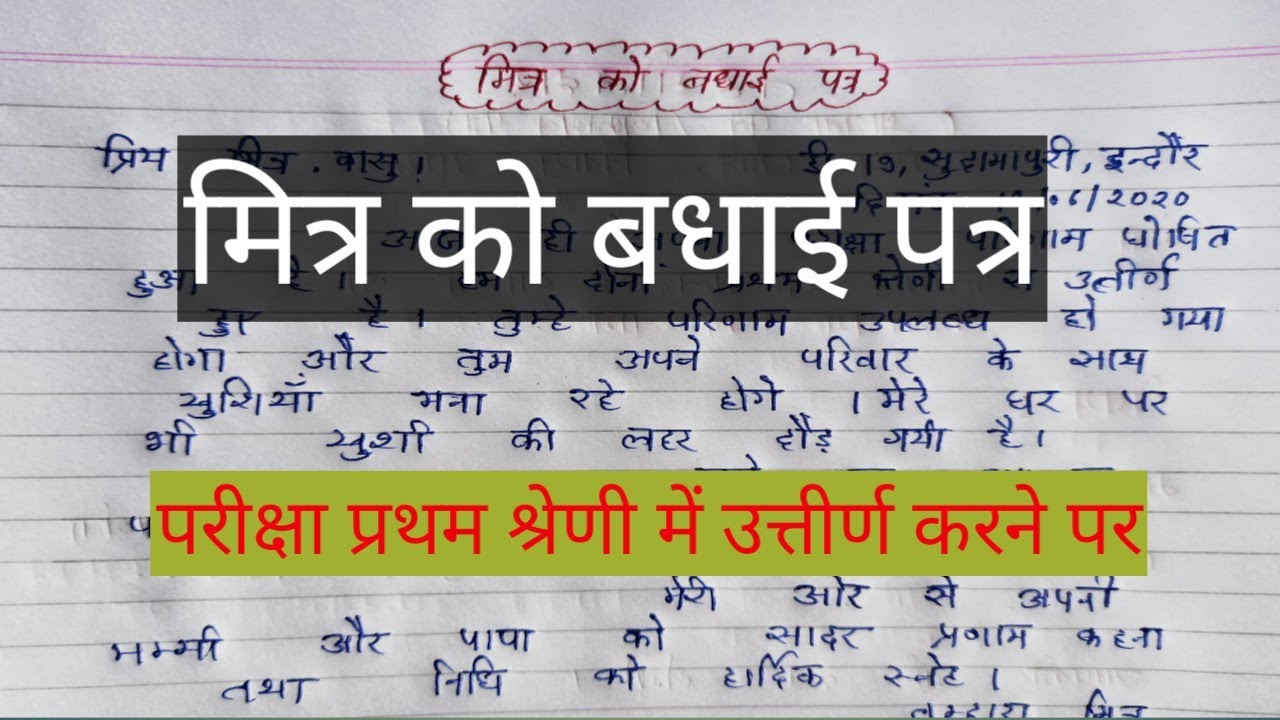 मित्र को बधाई पत्र
प्रिय मित्र . वासु !
19, सुदामापुरी, इन्दौर
मित्र को बधाई पत्र
/2020
घोषित
हुआ है। उत्तीर्ण
हुए है। तुम्हे परिणाम उपलब्ध हो गया
होगा और तुम अपने परिवार के साथ
खुशियाँ मना रहे होगे । मेरे घर पर
भी खुशी की लहर दौड़ गयी है।
परीक्षा प्रथम श्रेणी में उत्तीर्ण करने पर
मेरी ओर से अपनी
मम्मी और पापा को सादर प्रणाम कहना
तथा निधि को हार्दिक स्नेह ।
तुम्हारा मित्र